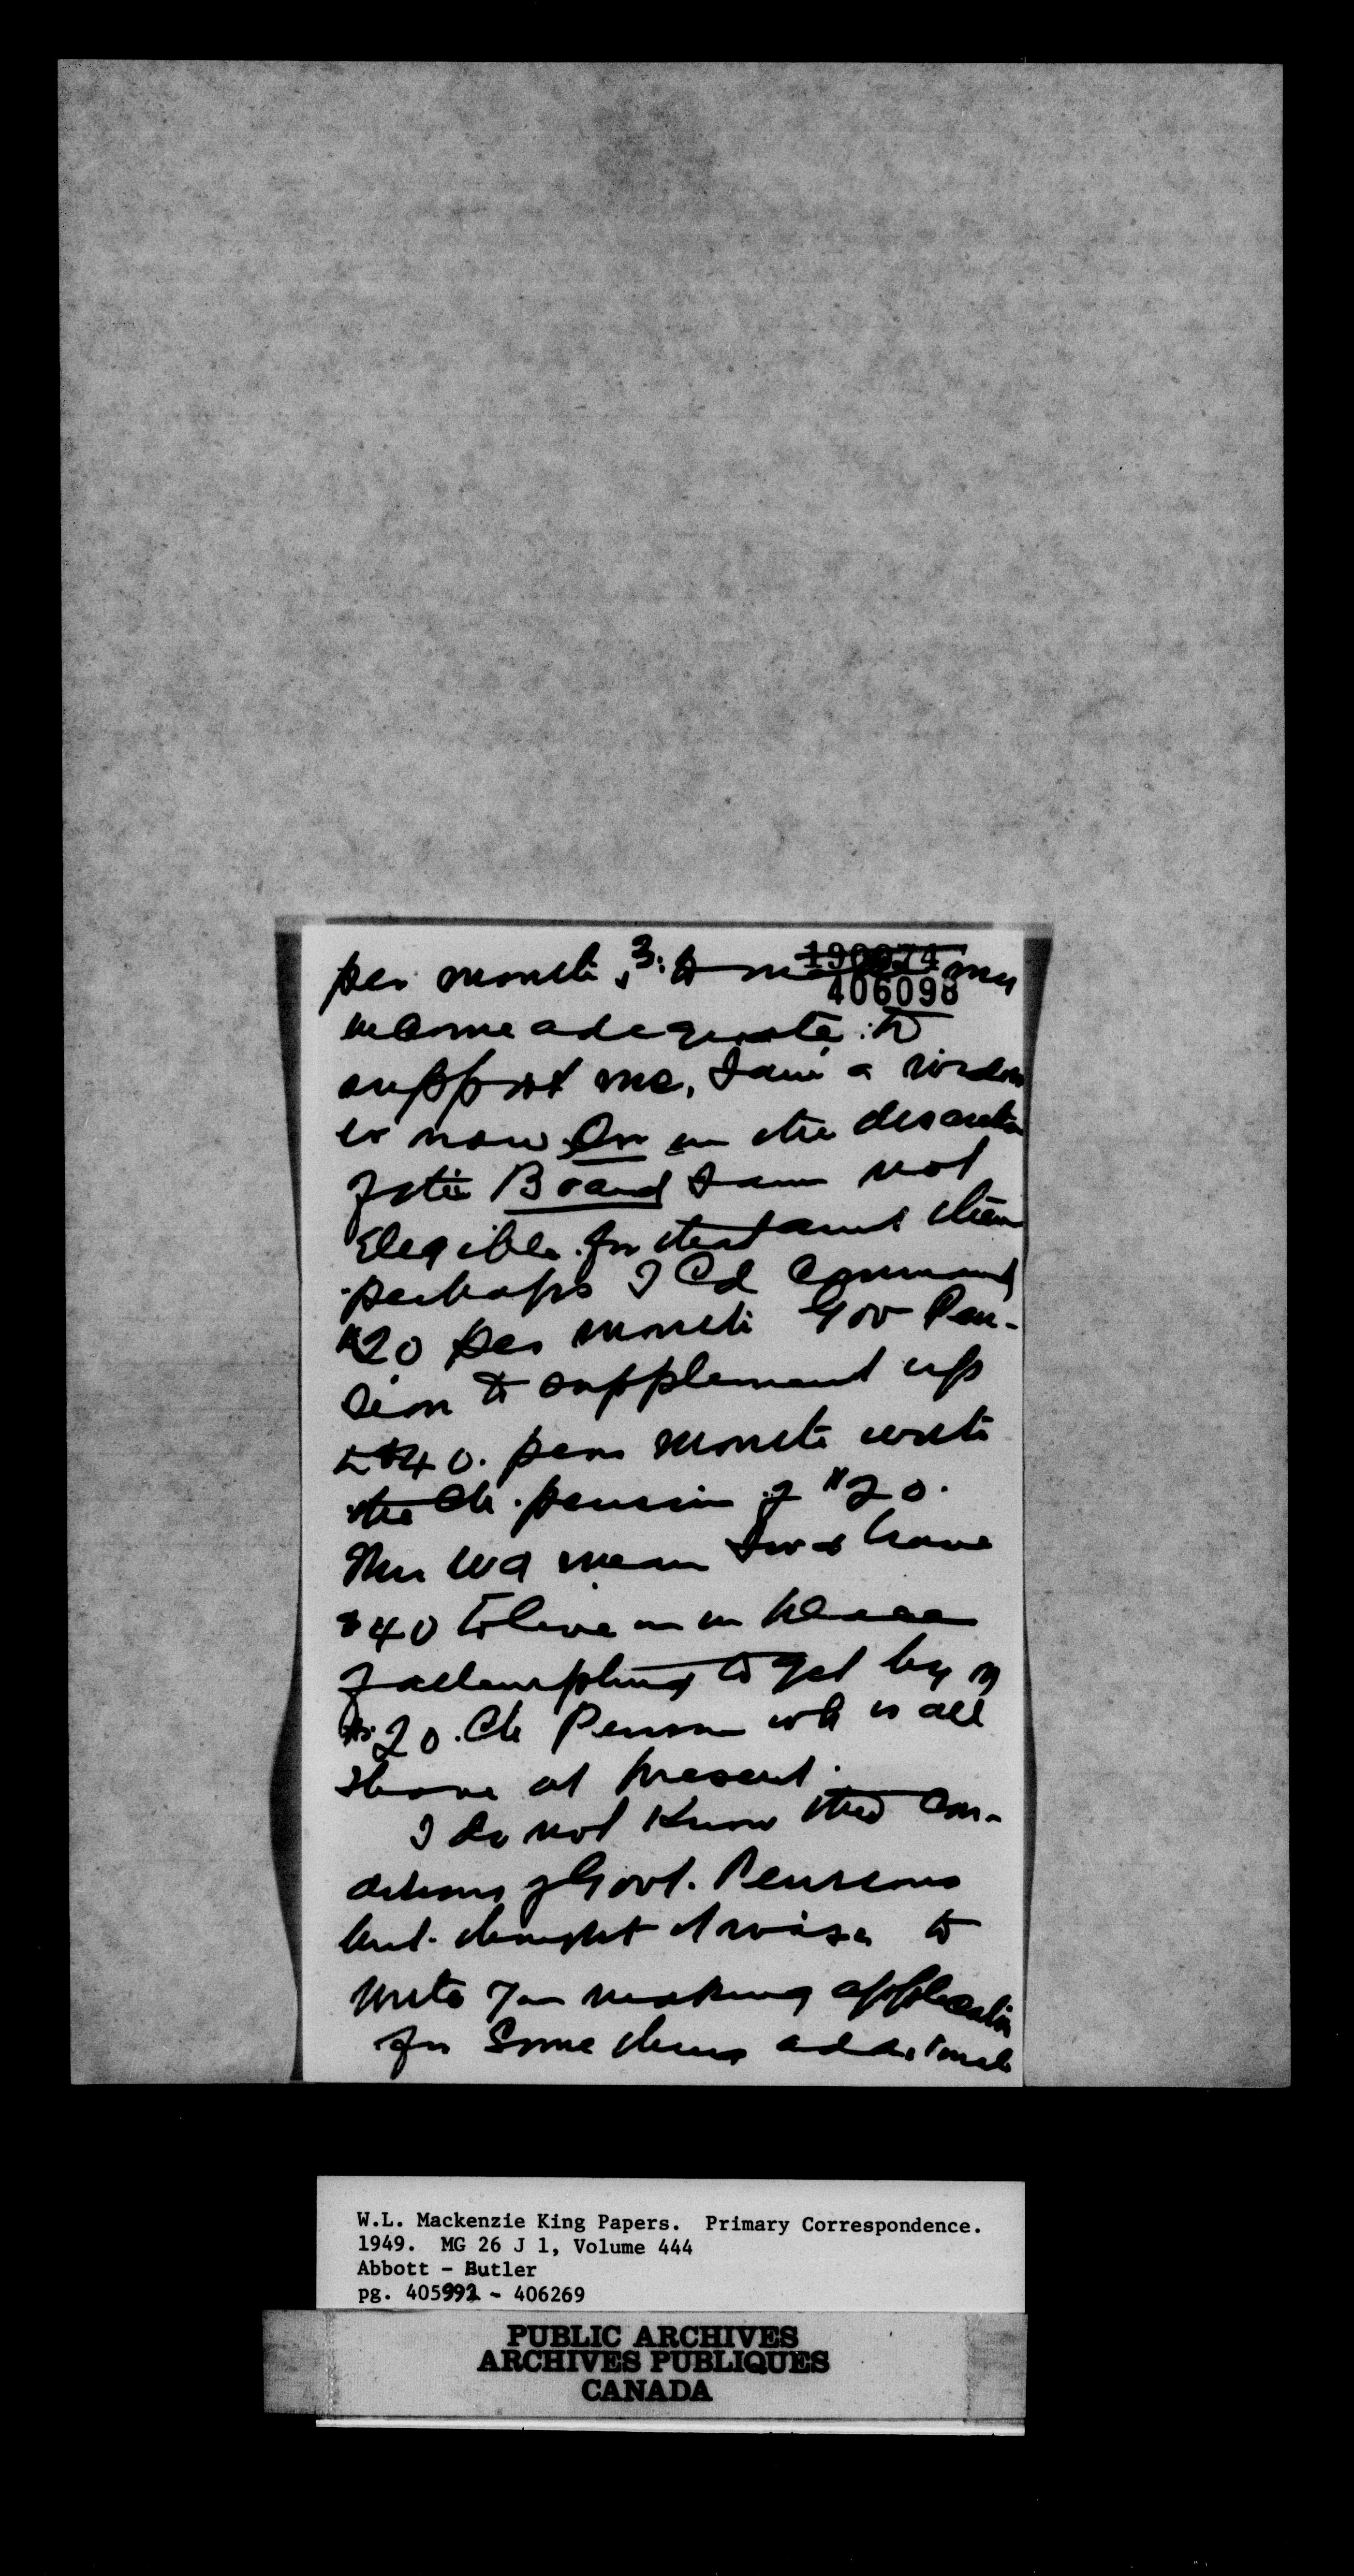 per month, 3. to my
190074
406098
income adequate to
support me, I am a widow
er now. Or in the discretion
of the Board I am not
Elegible for that amt then
perhaps I Cd Command
$20 per month Gov Pen-
sion to supplement up
to $40. per month with
the Ch. pension of $20.
This wd mean I wd have
$40 to live on in place
of attempting to get by on
$20. Ch Pension wh is all
I have at present.
I do not know the con-
ditions of Govt. Pensions
but thought it wise to
write you making application
for Some additional
W.L. Mackenzie King Papers. Primary Correspondence.
1949. MG 26 J 1, Volume 444
Abbott - Butler
pg. 405992 - 406269
PUBLIC ARCHIVES
ARCHIVES PUBLIQUES
CANADA